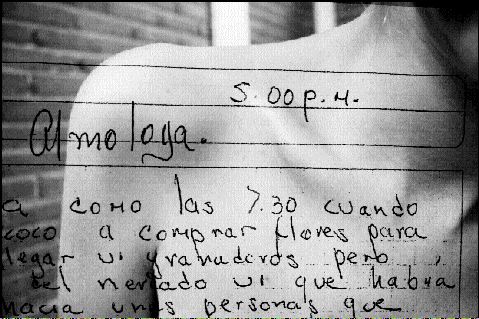 5.00 p.m.
Almoloya.
a como las 7.30 cuando
coco a comprar flores para
llegar vi granaderos pero
del mercado vi que habia
hacia unas personas que